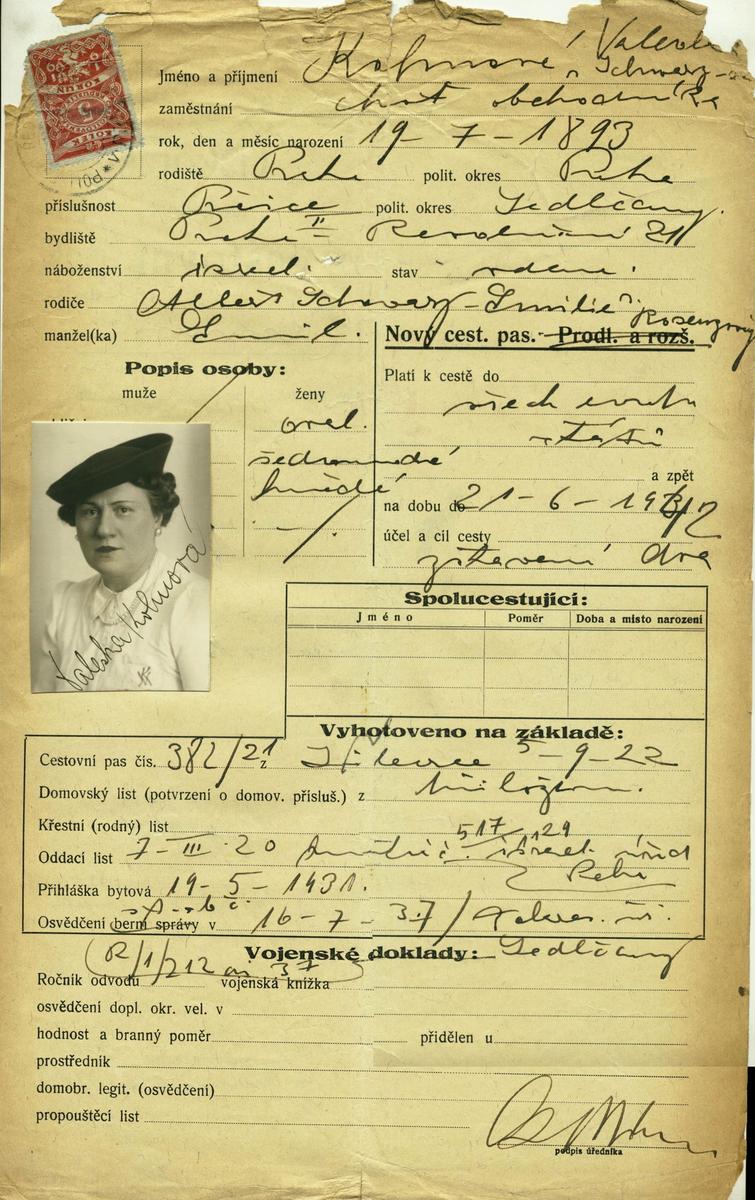 Jméno a příjmení Kohnová Valeska
Schwarz-
zaměstnání choť obchodníka
rok, den a měsíc narození 19 - 7 - 1893
rodiště Praha polit. okres Praha
příslušnost polit. okres Sedlčany
bydliště Praha II Revoluční 21
náboženství israel. stav vdaná
rodiče Albert Schwarz - Emilie r. Rosenzweig
manžel(ka) Emil.
Nový cest. pas. - Prodl. a rozš.
Popis osoby:
muže ženy
Platí k cestě do
všech evrop.
států
oval.
šedomodré
hnědé
- / -
a zpět
na dobu do 21 - 6 - 1942
účel a cíl cesty
zotavení dva
Valeska Kohnová
Spolucestující:
Jméno Poměr Doba a místo narození
Vyhotoveno na základě:
Cestovní pas čís. 382/21 z 5 - 9 - 22
Domovský list (potvrzení o domov. přísluš.) z
Křestní (rodný) list 517/129
Oddací list 7 - III - 20 israel. úřad
Praha
Přihláška bytová 19 - 5 - 1931.
Osvědčení berní správy v 16 - 7 - 37 /
Vojenské doklady: Sedlčany
R/1/212 ai 37
Ročník odvodu vojenská knížka
osvědčení dopl. okr. vel. v
hodnost a branný poměr přidělen u
prostředník
domobr. legit. (osvědčení)
propouštěcí list
podpis úředníka